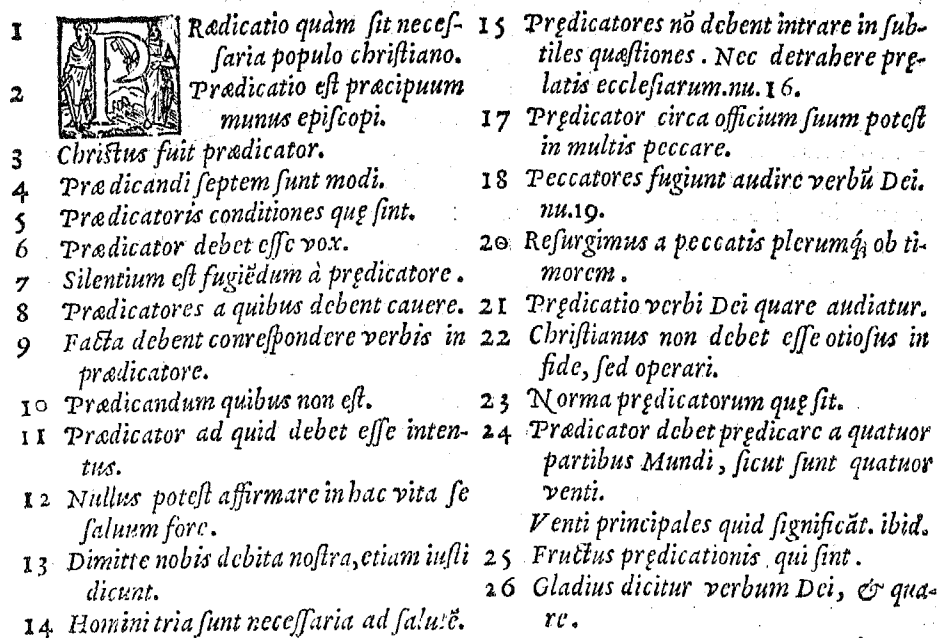 1 PRædicatio quàm ſit neceſ-
ſaria populo chriſtiano.
2 Prædicatio eſt præcipuum
munus epiſcopi.
3 Chriſtus fuit prædicator.
4 Prædicandi ſeptem ſunt modi.
5 Prædicatoris conditiones quę ſint.
6 Prædicator debet eſſe vox.
7 Silentium eſt fugiẽdum à prędicatore.
8 Prædicatores a quibus debent cauere.
9 Facta debent conreſpondere verbis in
prædicatore.
10 Prædicandum quibus non eſt.
11 Prædicator ad quid debet eſſe inten-
tus.
12 Nullus poteſt affirmare in hac vita ſe
ſaluum fore.
13 Dimitte nobis debita noſtra, etiam iuſti
dicunt.
14 Homini tria ſunt neceſſaria ad ſalutẽ.
15 Prędicatores nõ debent intrare in ſub-
tiles quæſtiones. Nec detrahere prę-
latis eccleſiarum.nu.16.
17 Prędicator circa officium ſuum poteſt
in multis peccare.
18 Peccatores fugiunt audire verbũ Dei.
nu.19.
20 Reſurgimus a peccatis plerumq́; ob ti-
morem.
21 Prędicatio verbi Dei quare audiatur.
22 Chriſtianus non debet eſſe otioſus in
fide, ſed operari.
23 Norma prędicatorum quę ſit.
24 Prædicator debet prędicare a quatuor
partibus Mundi, ſicut ſunt quatuor
venti.
Venti principales quid ſignificãt. ibid.
25 Fructus prędicationis qui ſint.
26 Gladius dicitur verbum Dei, & qua-
re.